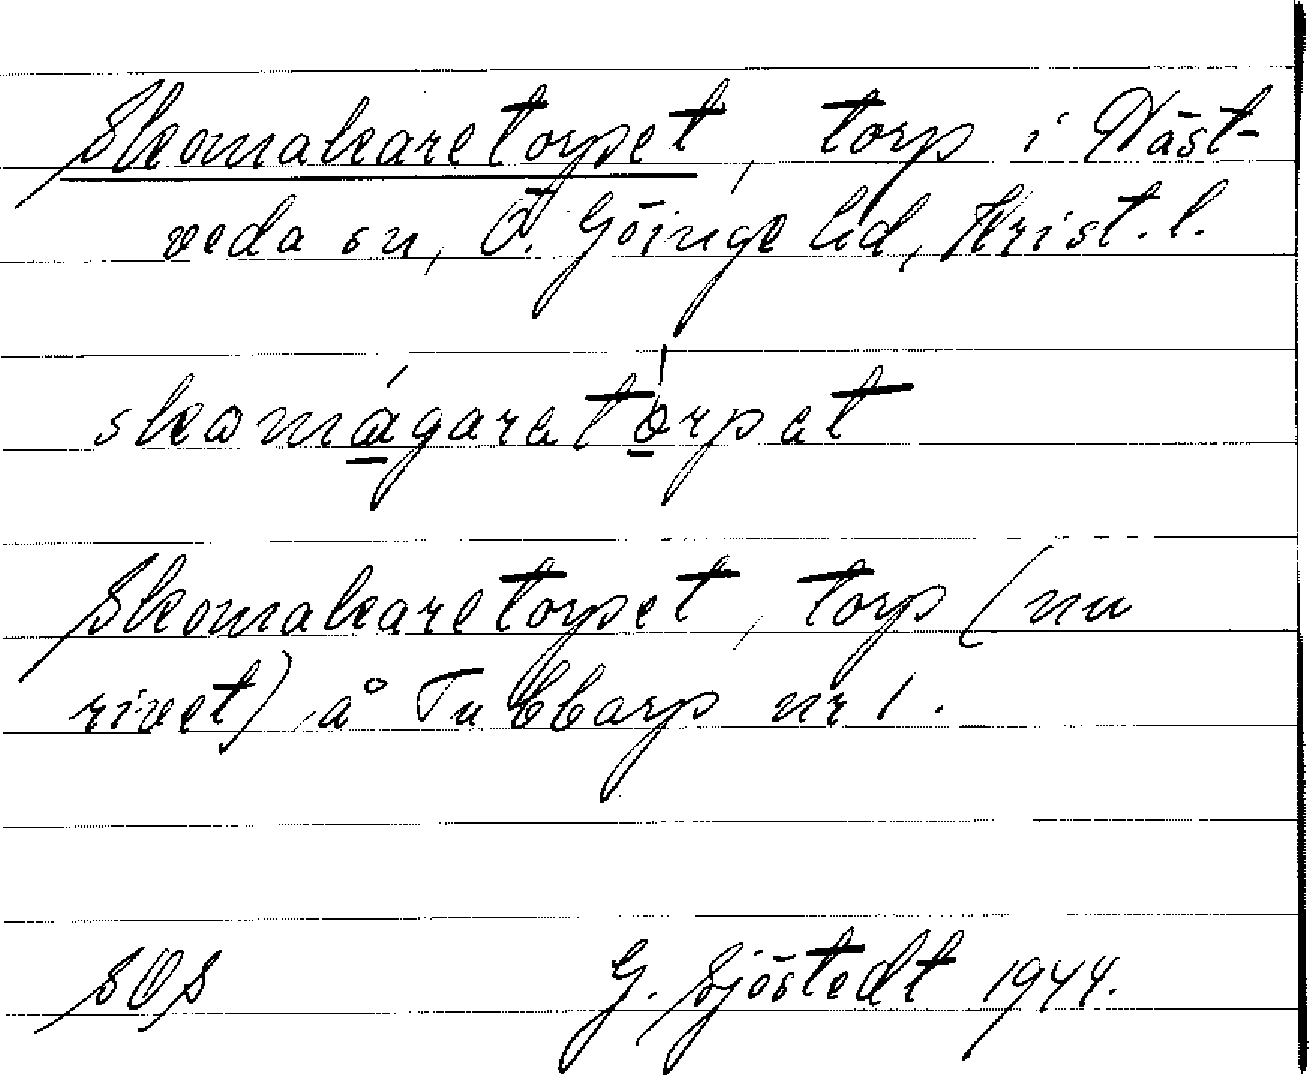 Skomakaretorpet, torp i Näst-
veda sn, Ö. Göinge hd, Krist. l.
skomágaratórpat
Skomakaretorpet, torp (nu
rivet) å Tubbarp nr 1.
SOS G. Sjöstedt 1944.